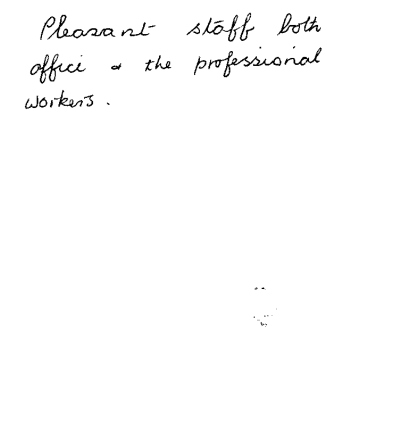 Pleasant staff both
office & the professional
workers.